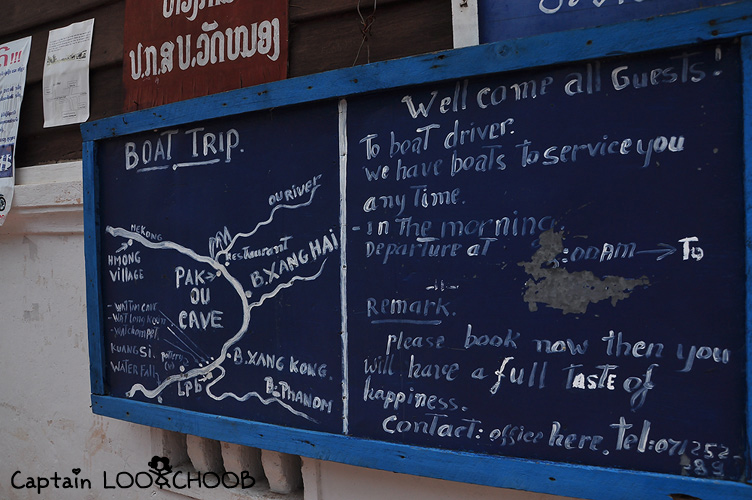 ປ.ກ.ສ.ບ.ວັດໜອງ
BOAT TRIP.
MEKONG
HMONG
VILLAGE
OU RIVER
Restaurant
B.XANG HAI
PAK
OU
CAVE
KUANGSI.
WATER FALL
pottery
LPB
B.XANG KONG.
B.PHANOM
Well come all Guests!
To boat driver.
we have boats to service you
any time.
- in The morning
Departure at :00AM → To
-11-
Remark.
please book now then you
will have a full taste of
happiness.
Contact: office here. Tel: 071 252-
Captain LOO CHOOB